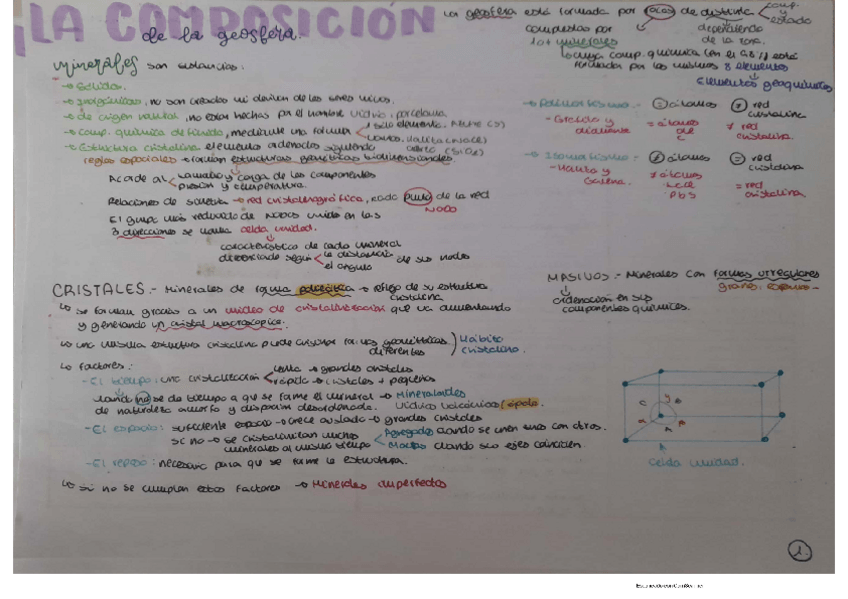 ¡LA COMPOSICIÓN
de la geosfera.
La geosfera está formada por rocas de distinta comp. y estado
compuestas por 1 o + minerales
dependiendo de la roca.
cuya comp. química con el 98% está
formada por los mismos 8 elementos
elementos geoquímicos
Minerales son sustancias:
→ Sólidos.
→ Inorgánicos, no son creados ni derivan de los seres vivos.
→ de origen natural, no están hechas por el hombre vidrio, porcelana.
→ comp. química definida, mediante una fórmula 1 solo elemento. Azufre (S)
varios, halita (NaCl)
cuarzo (SiO2)
→ Estructura cristalina elementos ordenados siguiendo
reglas espaciales → forman estructuras geométricas tridimensionales
Acorde al tamaño y carga de los componentes
presión y temperatura.
Relaciones de simetría → red cristalográfica, cada punto de la red
NODO
El grupo más reducido de NODOS unido en las
3 direcciones se llama celda unidad.
característico de cada mineral
determinado según la distancia de sus nodos
el ángulo
- Polimorfismo.- = átomos ≠ red cristalina
- Grafito y diamante = átomos de C ≠ red cristalina.
- Isomorfismo.- ≠ átomos = red cristalina
- Halita y Galena. ≠ átomos NaCl PbS = red cristalina
CRISTALES.- Minerales de forma poliédrica → reflejo de su estructura
cristalina
↳ se forman gracias a un núcleo de cristalización que va aumentando
y generando un cristal macroscópico.
↳ una misma estructura cristalina puede originar formas geométricas
diferentes
Hábito cristalino.
MASIVOS.- Minerales con formas irregulares
granos, espumas
ordenación en sus
componentes químicos.
↳ Factores:
- El tiempo: una cristalización lenta → grandes cristales
rápida → cristales + pequeños
cuando no se da tiempo a que se forme el mineral → Mineraloides
de naturaleza amorfa y disposición desordenada. Vidrios volcánicos (ópalo.
- El espacio: suficiente espacio → crece aislado → grandes cristales
si no → se cristalizan muchos
minerales al mismo tiempo
Agregados cuando se unen unos con otros.
Maclas cuando sus ejes coinciden.
- El reposo: necesario para que se forme la estructura.
↳ si no se cumplen estos factores → Minerales imperfectos
c
γ β
α
a
b
Celda unidad.
1.
Escaneado con CamScanner